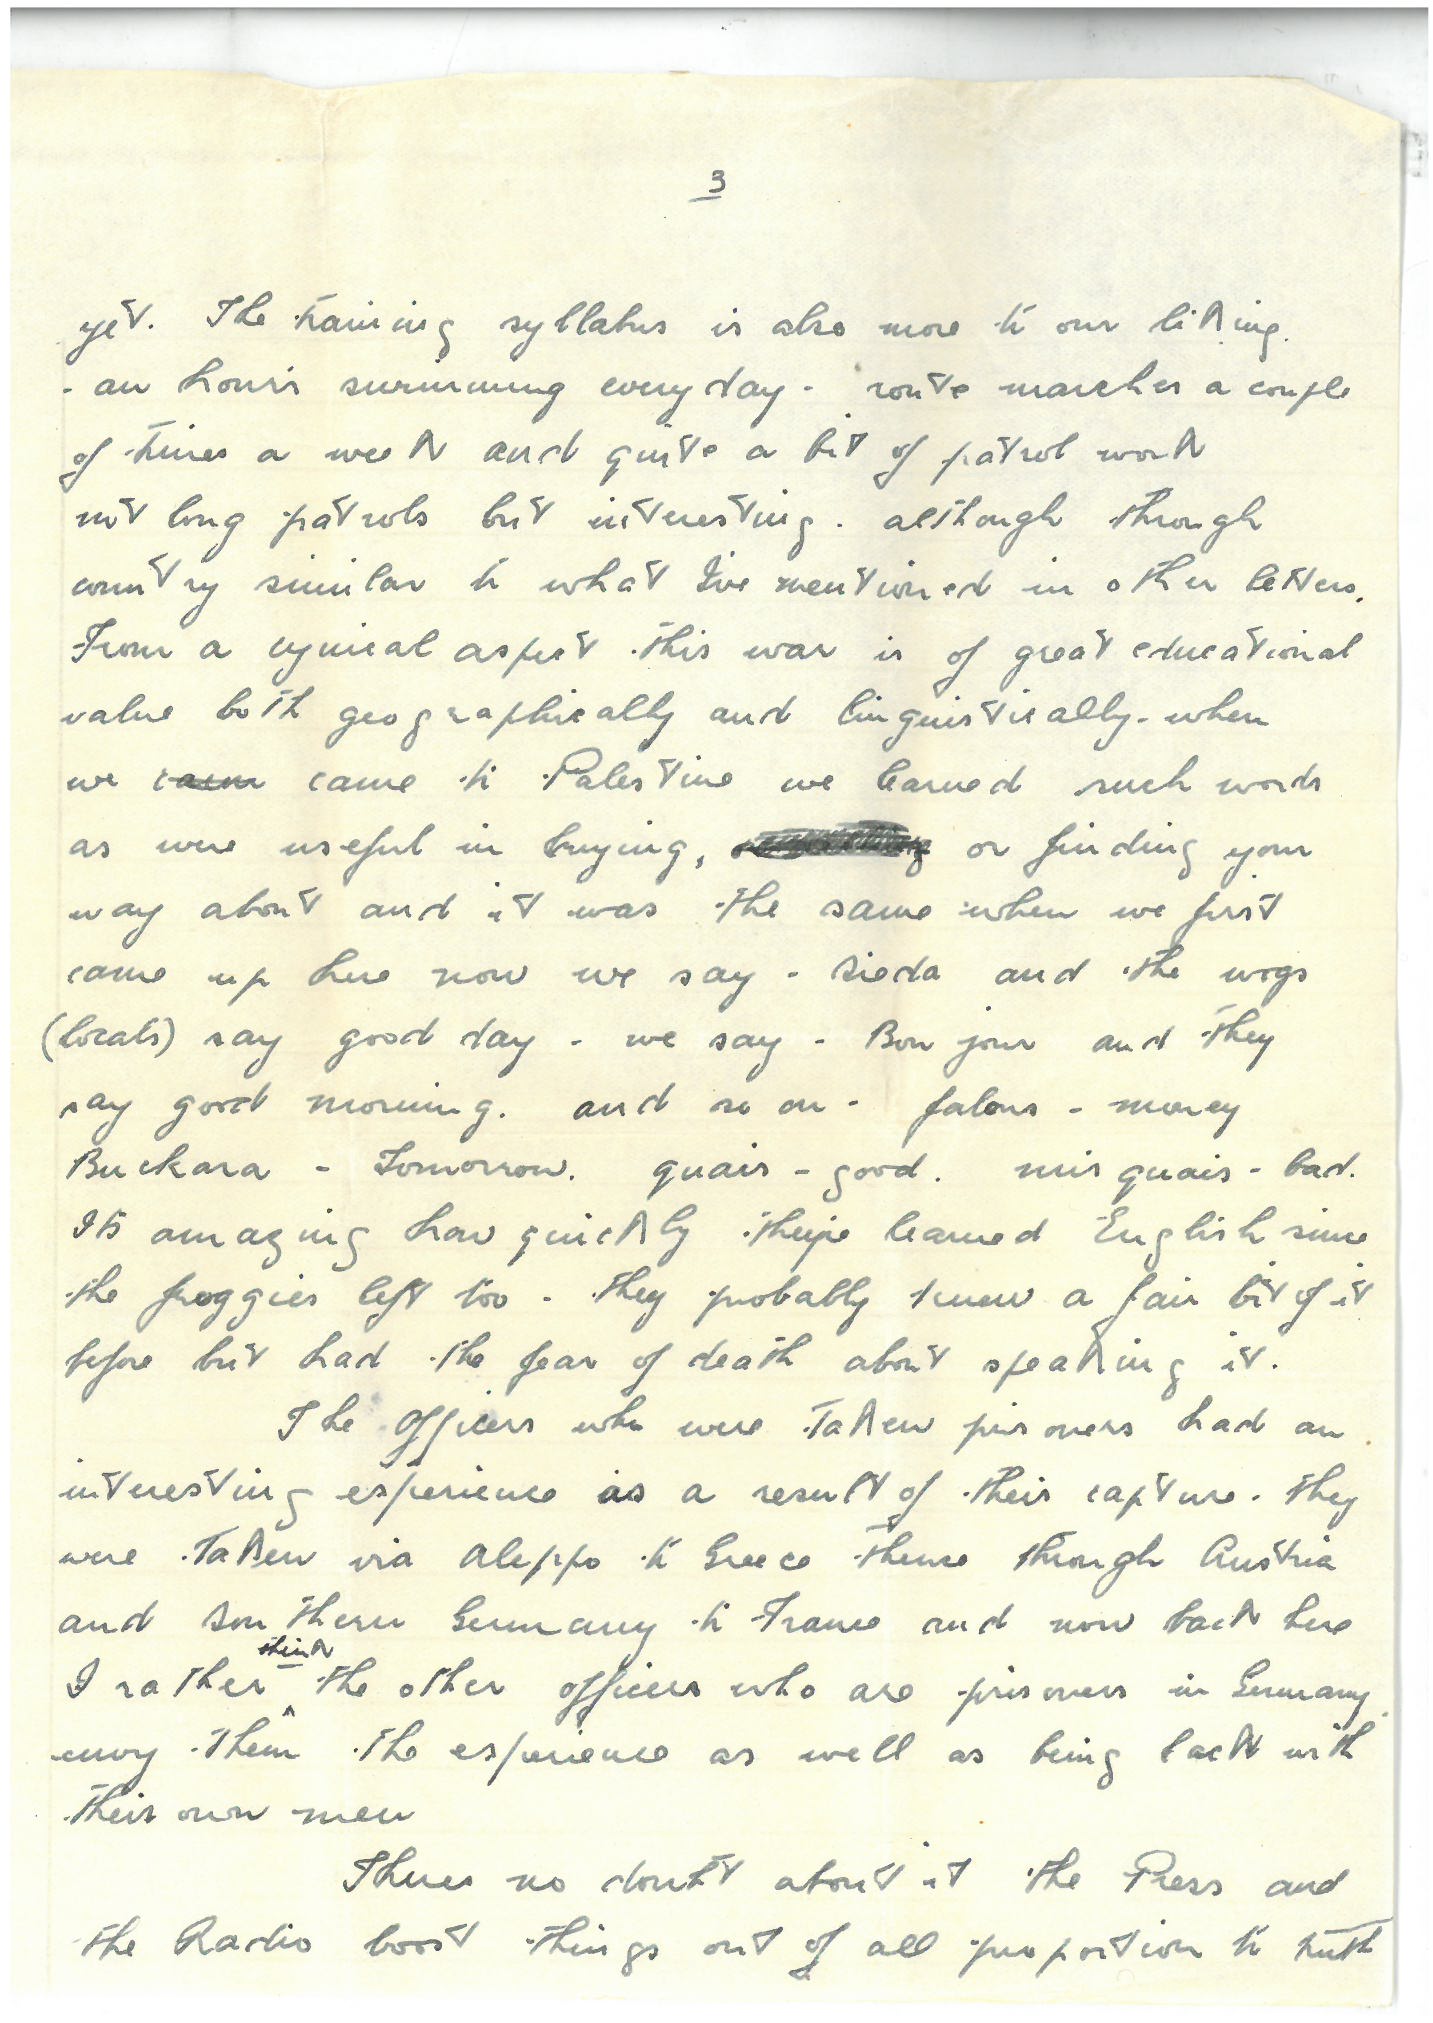 3
yet. The training syllabus is also more to our liking.
- an hour's swimming everyday - route marches a couple
of times a week and quite a bit of patrol work
not long patrols but interesting. although through
country similar to what I've mentioned in other letters.
From a cynical aspect this war is of great educational
value both geographically and linguistically - when
we came to Palestine we learned such words
as were useful in buying, or finding your
way about and it was the same when we first
came up here now we say - Sieda and the wogs
(locals) say good day - we say - Bon jour and they
say good morning. and so on - falous - money
Buckara - Tomorrow. quais - good. mis quais - bad.
Its amazing how quickly they've learned English since
the froggies left too - they probably knew a fair bit of it
before but had the fear of death about speaking it.
The Officers who were taken prisoners had an
interesting experience as a result of their capture. they
were taken via Aleppo to Greece thence through Austria
and Southern Germany to France and now back here
I rather think the other officers who are prisoners in Germany
envy them the experience as well as being back with
their own men
Theres no doubt about it the Press and
the Radio boost things out of all proportion to truth